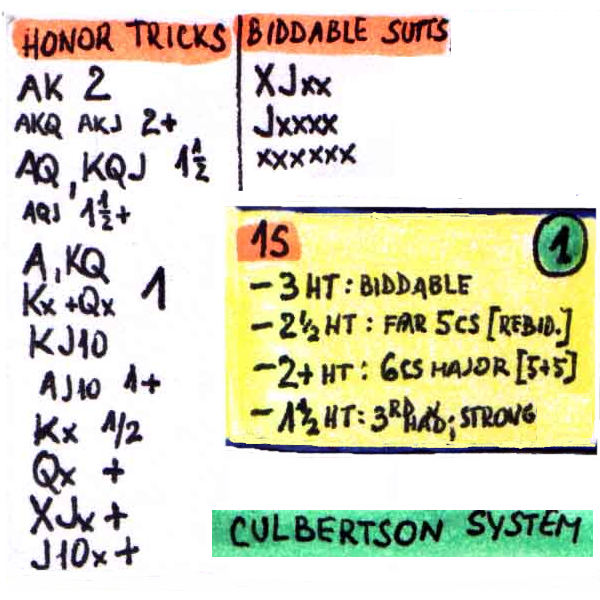 HONOR TRICKS
AK 2
AKQ AKJ 2+
AQ, KQJ 1½
AQJ 1½+
A, KQ
Kx +Qx 1
KJ10
AJ10 1+
Kx 1/2
Qx +
XJx +
J10x +
BIDDABLE SUITS
XJxx
Jxxxx
xxxxxx
1S 1
- 3 HT: BIDDABLE
- 2½ HT: FAIR 5CS [REBID.]
- 2+ HT: 6CS MAJOR [5+5]
- 1½ HT: 3RD HAND; STRONG
CULBERTSON SYSTEM